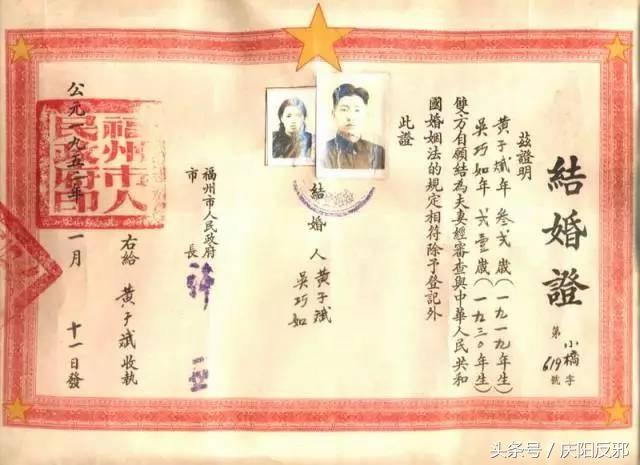 結婚證
第小橋字
619號
茲證明
黃子斌年叁弍歲(一九一九年生)
吳巧如年弍壹歲(一九三〇年生)
雙方自願結為夫妻經審查與中華人民共和
國婚姻法的規定相符除予登記外
此證
結婚人 黃子斌
吳巧如
福州市人民政府
市長
右給 黃子斌收執
公元一九五 年一月十一日發
福州市人民政府印
头条号/庆阳反邪